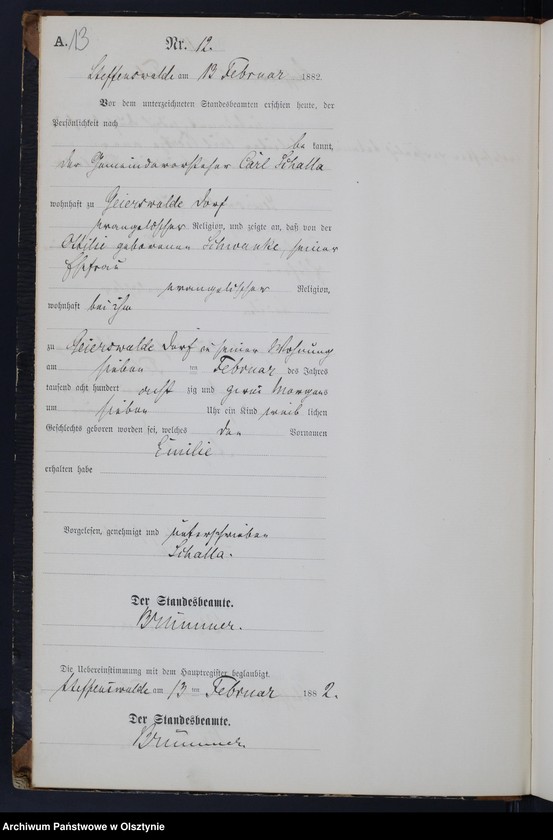 A. 13
Nr. 12.
Steffenswalde am 13 Februar 1882.
Vor dem unterzeichneten Standesbeamten erschien heute, der
Persönlichkeit nach
be kannt,
der Gemeindevorsteher Carl Schalla
wohnhaft zu Geierswalde Dorf
evangelischer Religion, und zeigte an, daß von der
Ottilie geborenen Schwanke, seiner
Ehefrau
evangelischer Religion,
wohnhaft bei ihm
zu Geierswalde Dorf in seiner Wohnung
am sieben ten Februar des Jahres
tausend acht hundert acht zig und zwei Morgens
um sieben Uhr ein Kind weib lichen
Geschlechts geboren worden sei, welches den Vornamen
Emilie
erhalten habe
Vorgelesen, genehmigt und unterschrieben
Schalla.
Der Standesbeamte.
Brümmer.
Die Uebereinstimmung mit dem Hauptregister beglaubigt.
Steffenswalde am 13 ten Februar 188 2.
Der Standesbeamte.
Brümmer.
Archiwum Państwowe w Olsztynie